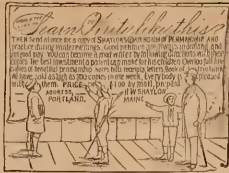 Learn to Write like this
THEN Send at once for a copy of SHAYLOR'S COMPENDIUM OF PENMANSHIP AND
practice during winter evenings. Good penmen are always in demand, and
at good pay. You can become a good writer by following directions with these
copies. The best investment a parent can make for his children. Over 100 full line
copies of beautiful penmanship, notes, bills, receipts, letters. Book of Instructions.
We have sold as high as 300 copies in one week. Everybody is pleased
with them. PRICE $1.00 by mail, prepaid
ADDRESS, H.W. SHAYLOR,
PORTLAND, MAINE